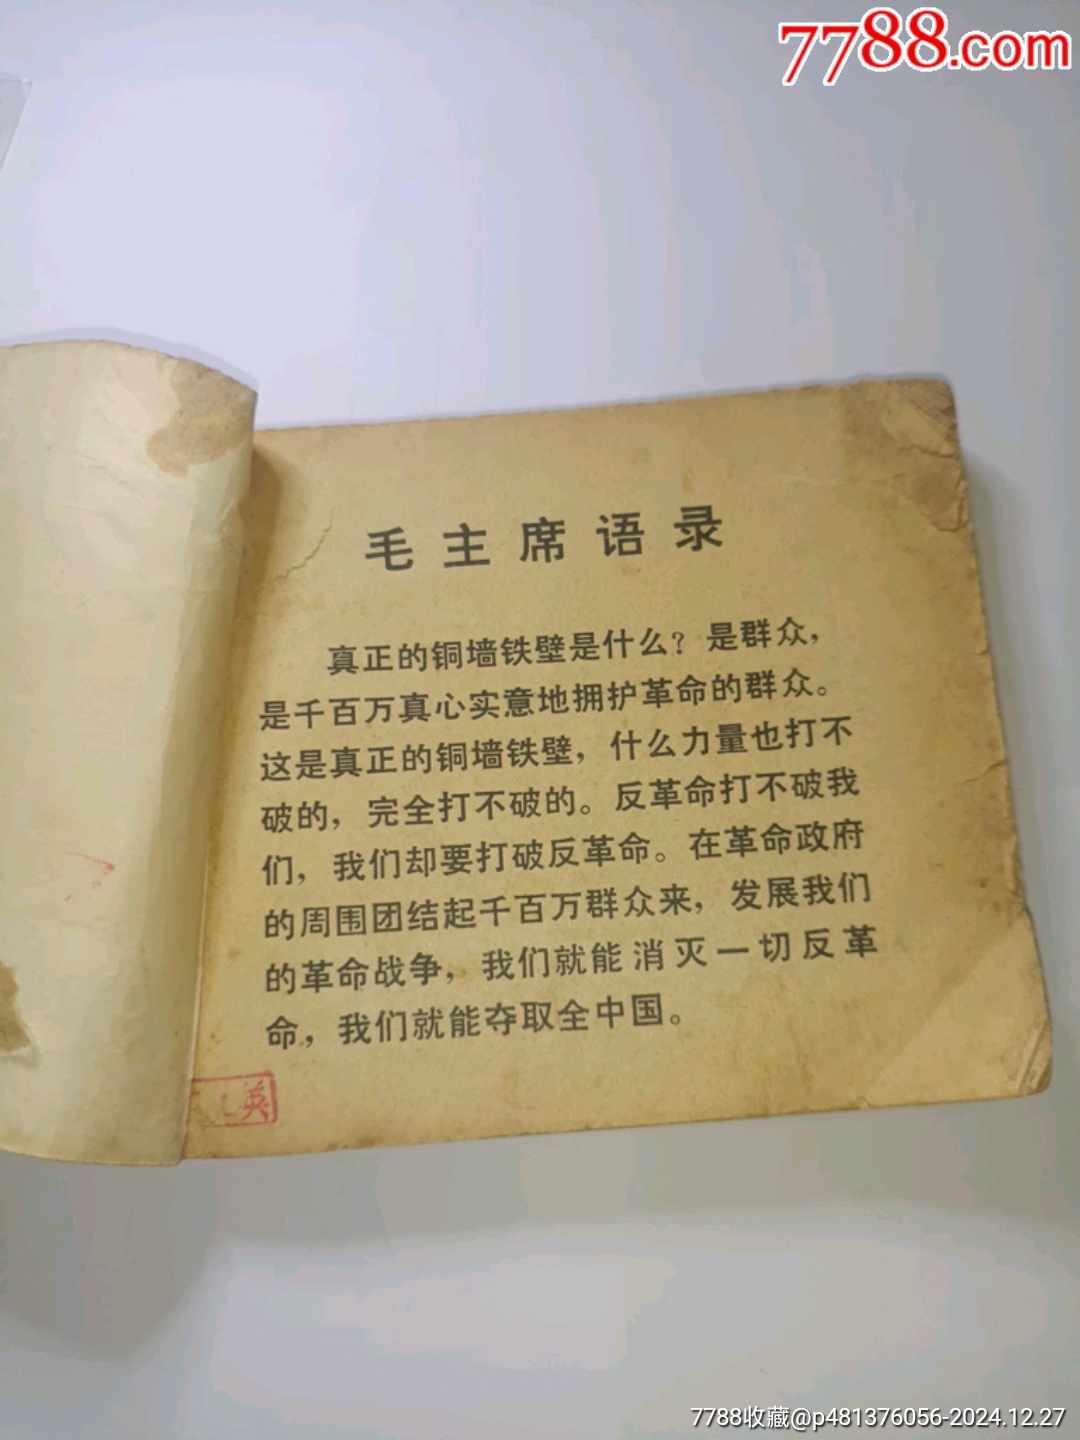 7788.com
毛主席语录
真正的铜墙铁壁是什么？是群众，
是千百万真心实意地拥护革命的群众。
这是真正的铜墙铁壁，什么力量也打不
破的，完全打不破的。反革命打不破我
们，我们却要打破反革命。在革命政府
的周围团结起千百万群众来，发展我们
的革命战争，我们就能消灭一切反革
命，我们就能夺取全中国。
英
7788收藏@p481376056-2024.12.27